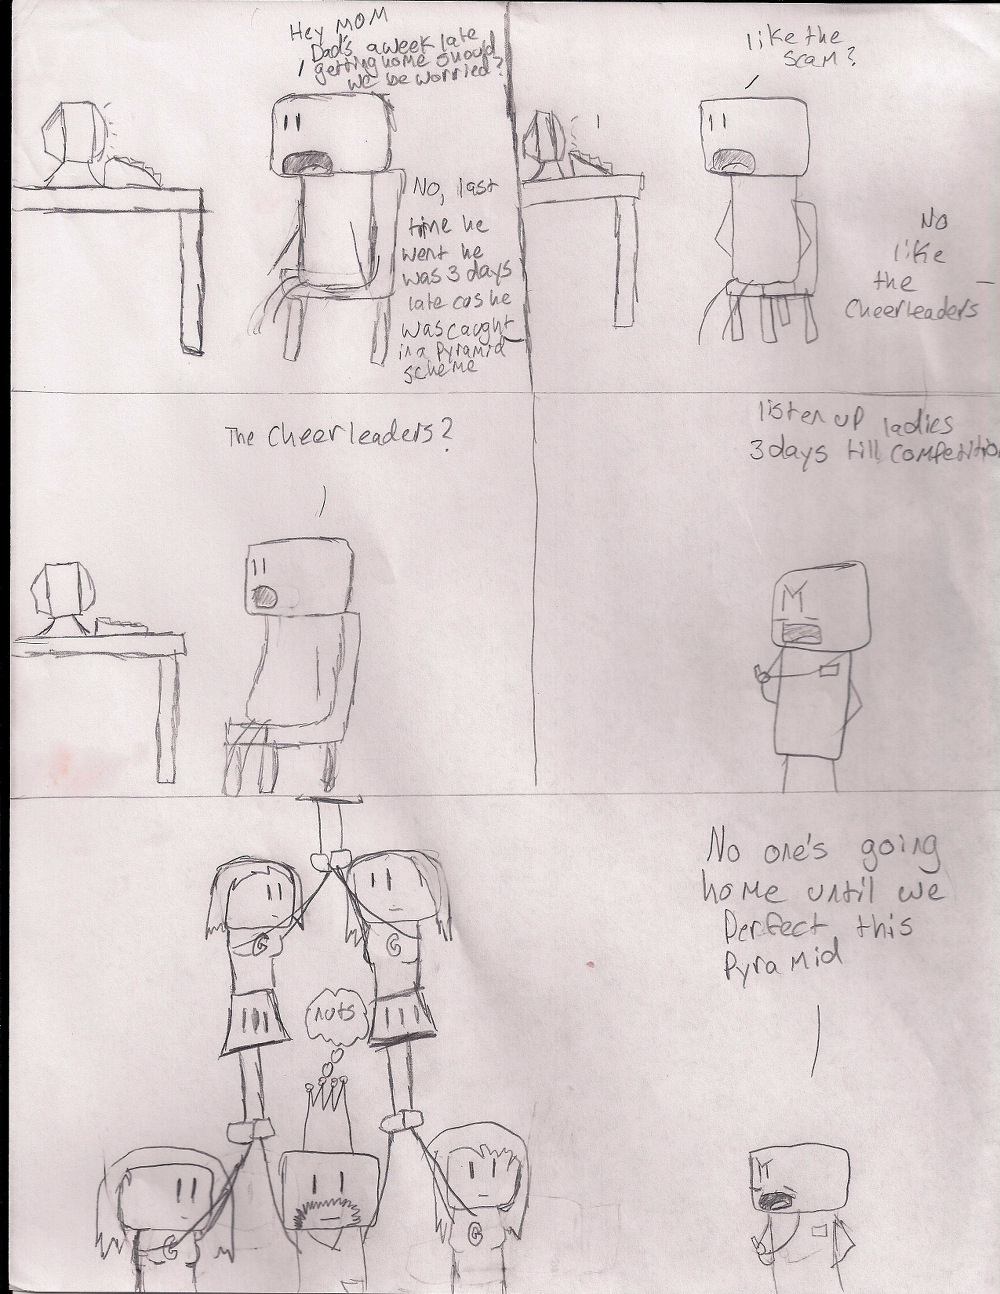 Hey MOM
Dad's a week late
getting home should
we be worried?
No, last
time he
went he
was 3 days
late cos he
was caught
in a Pyramid
scheme
like the
scam?
No
like
the
Cheerleaders
The Cheerleaders?
listen up ladies
3 days till competition
No one's going
home until we
Perfect this
Pyramid
nuts
G
G
G
G